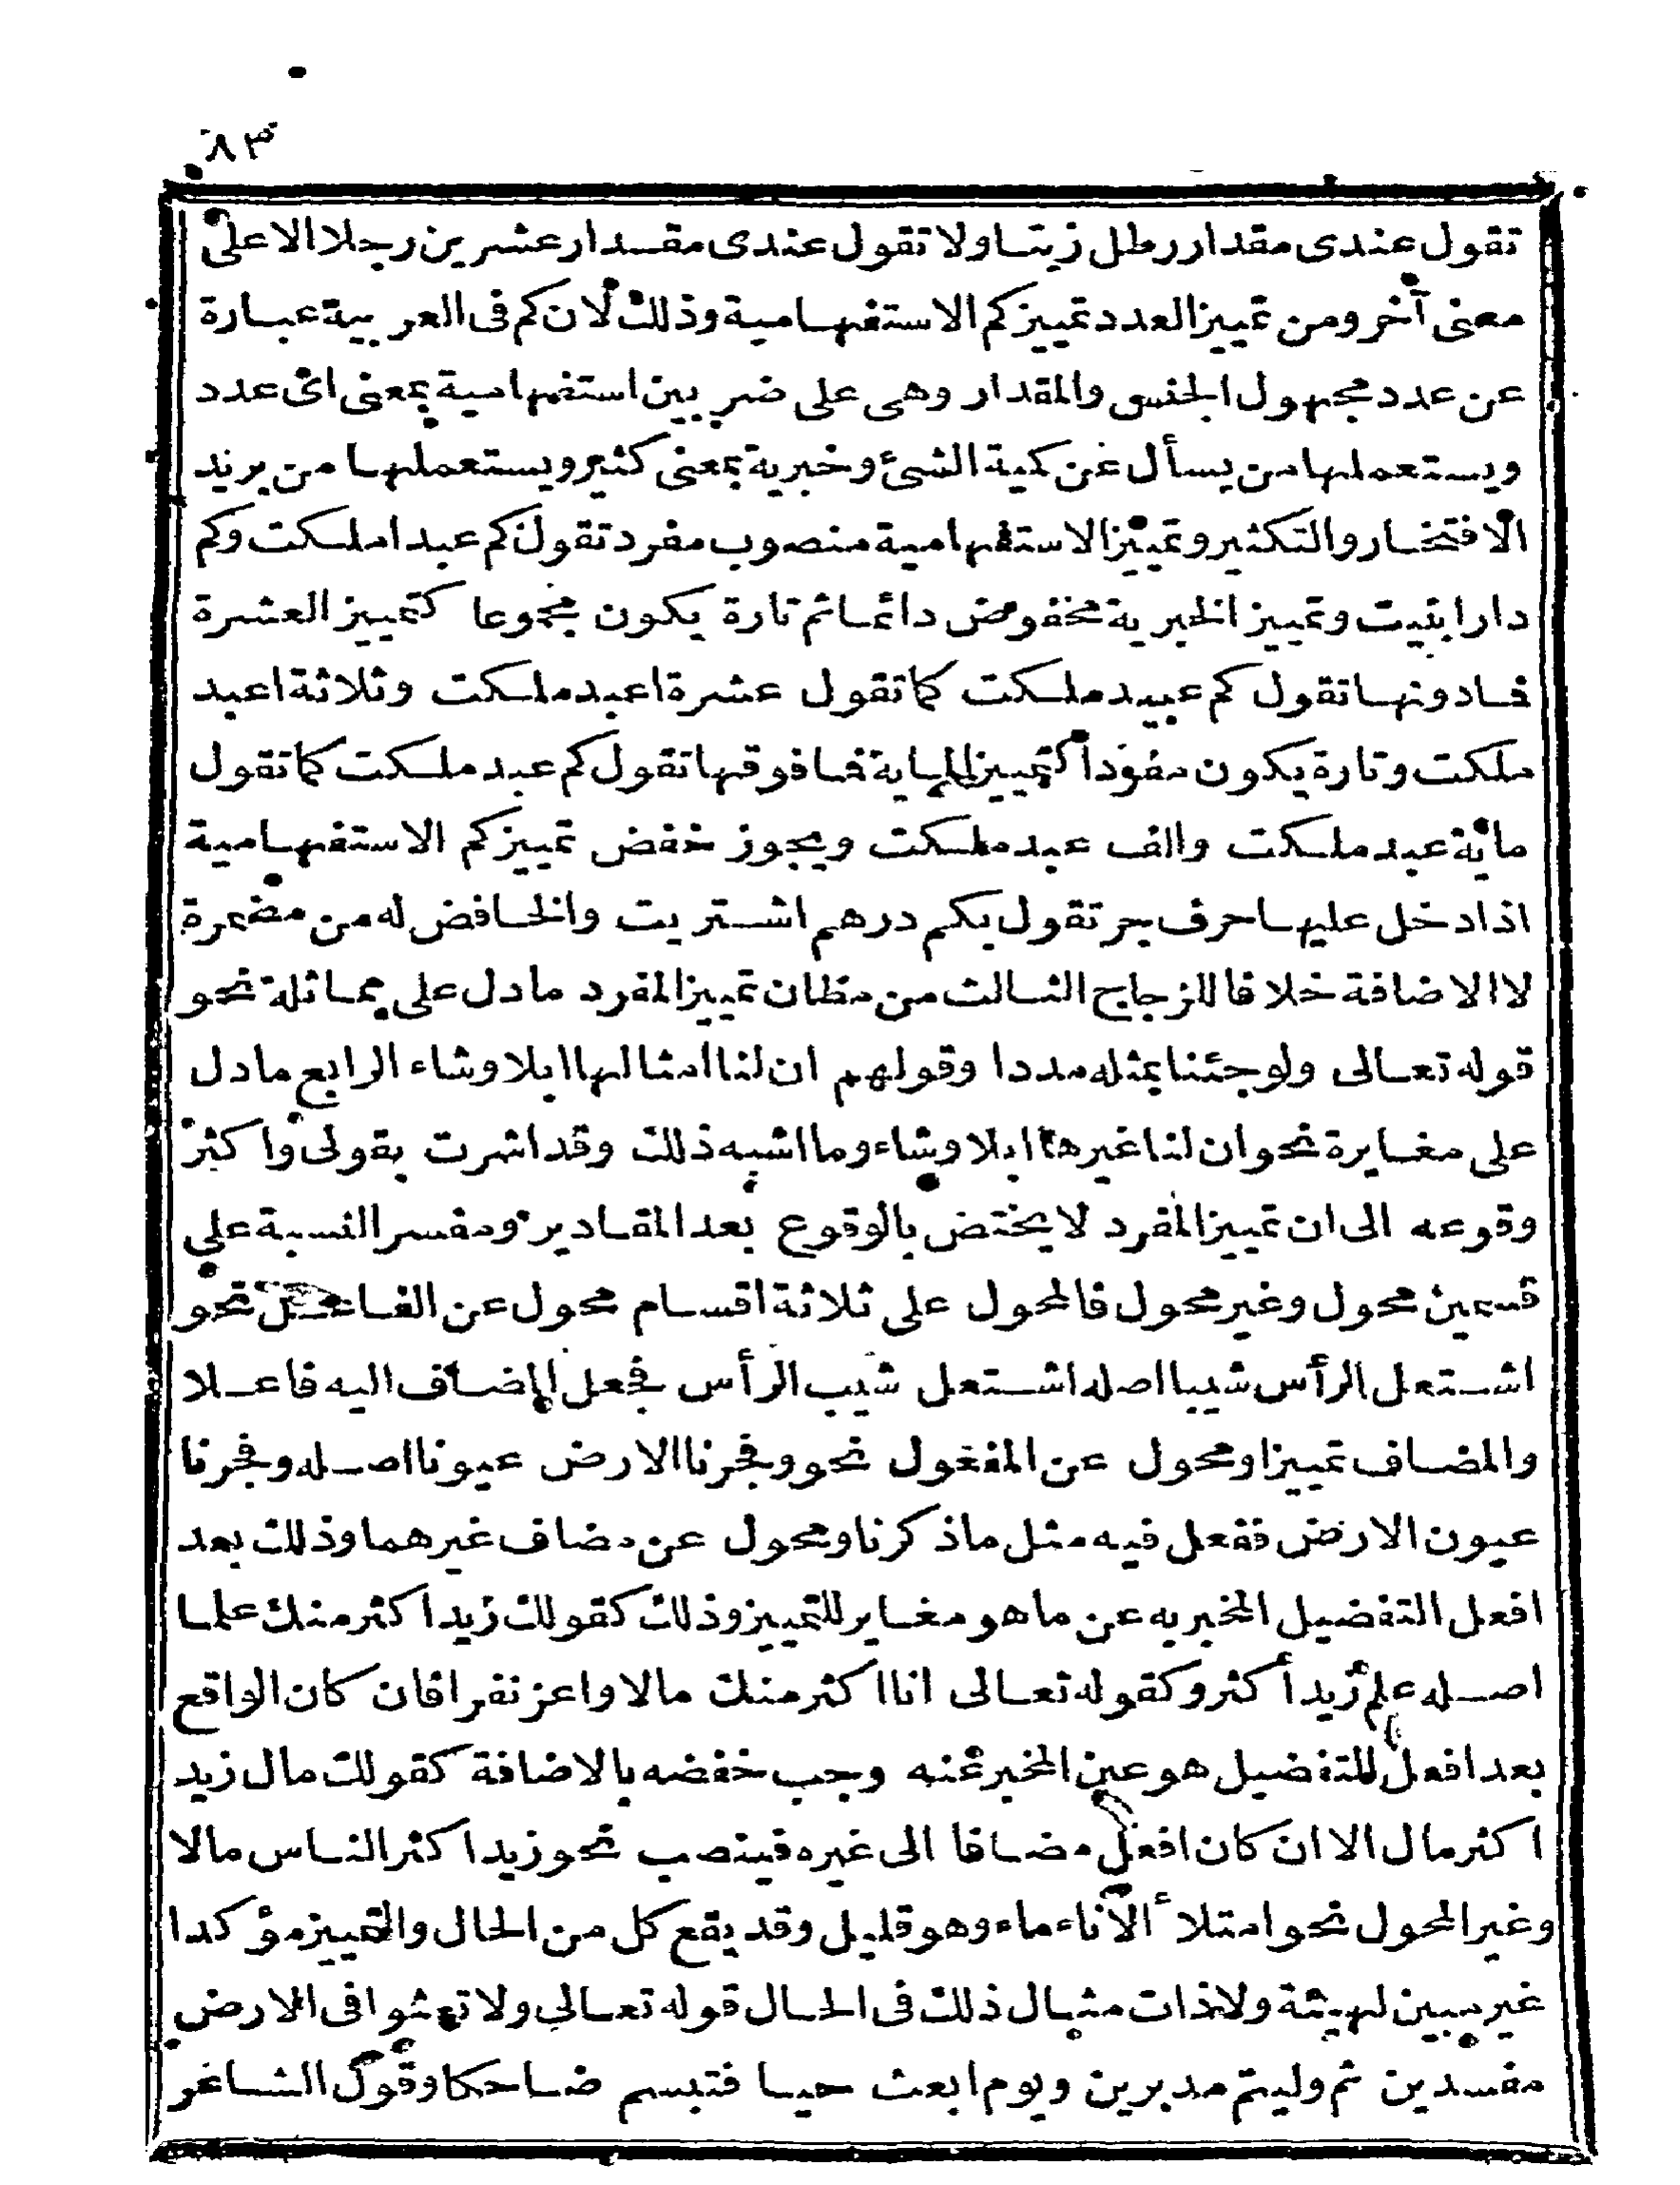 ٨٣
تقول عندى مقدار رطل زيتا ولا تقول عندى مقدار عشرين رجلا الا على
معنى آخر ومن تمييز العدد تمييز كم الاستفهامية وذلك لان كم فى العربية عبارة
عن عدد مجهول الجنس والمقدار وهى على ضربين استفهامية بمعنى اى عدد
ويستعملها من يسأل عن كمية الشئ وخبرية بمعنى كثير ويستعملها من يريد
الافتخار والتكثير وتمييز الاستفهامية منصوب مفرد تقول كم عبدا ملكت وكم
دارا بنيت وتمييز الخبرية مخفوض دائما ثم تارة يكون مجموعا كتمييز العشرة
فادونها تقول كم عبيد ملكت كما تقول عشرة اعبد ملكت وثلاثة اعبد
ملكت وتارة يكون مفردا كتمييز الماية فما فوقها تقول كم عبد ملكت كما تقول
مائة عبد ملكت والف عبد ملكت ويجوز خفض تمييز كم الاستفهامية
اذا دخل عليها حرف جر تقول بكم درهم اشتريت والخافض له من مضمرة
لا الاضافة خلافا للزجاج الثالث من مظان تمييز المفرد مادل على مماثلة نحو
قوله تعالى ولو جئنا بمثله مددا وقولهم ان لنا امثالها ابلا وشاء الرابع مادل
على مغايرة نحو ان لنا غيرها ابلا وشاء وما اشبه ذلك وقد اشرت بقولى واكثر
وقوعه الى ان تمييز المفرد لا يختص بالوقوع بعد المقادير ومفسر النسبة على
قسمين محول وغير محول فالمحول على ثلاثة اقسام محول عن الفاعل نحو
اشتعل الرأس شيبا اصله اشتعل شيب الرأس فجعل المضاف اليه فاعلا
والمضاف تمييزا ومحول عن المفعول نحو وفجرنا الارض عيونا اصله وفجرنا
عيون الارض ففعل فيه مثل ماذكرنا ومحول عن مضاف غيرهما وذلك بعد
افعل التفضيل المخبر به عن ما هو مغاير للتمييز وذلك كقولك زيد اكثر منك علما
اصله علم زيد أكثر وكقوله تعالى انا اكثر منك مالا واعز نفرا فان كان الواقع
بعد افعل للتفضيل هو عين المخبر عنه وجب خفضه بالاضافة كقولك مال زيد
اكثر مال الا ان كان افعل مضافا الى غيره فينصب نحو زيد اكثر الناس مالا
وغير المحول نحو امتلأ الاناء ماء وهو قليل وقد يقع كل من الحال والتمييز مؤكدا
غير مبين لهيئة ولاذات مثال ذلك فى الحال قوله تعالى ولا تعثوا فى الارض
مفسدين ثم وليتم مدبرين ويوم ابعث حيا فتبسم ضاحكا وقول الشاعر